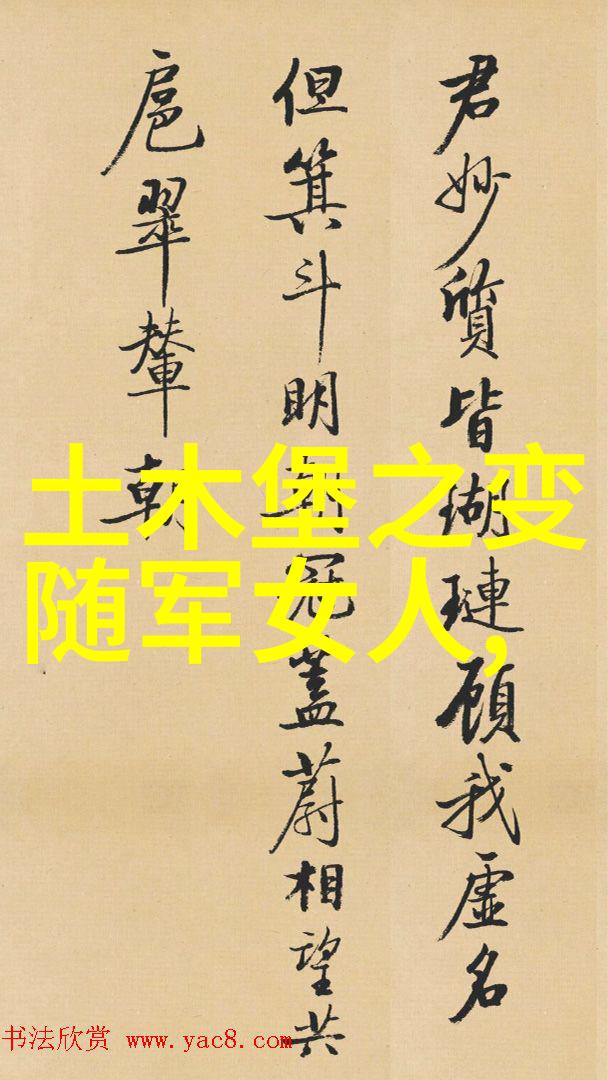 君妙質皆瑚璉顧我虛名
但箕斗明朝冠蓋蔚相望共
扈翠輦朝
土木堡之变
随军女人,
书法欣赏 www.yac8.com